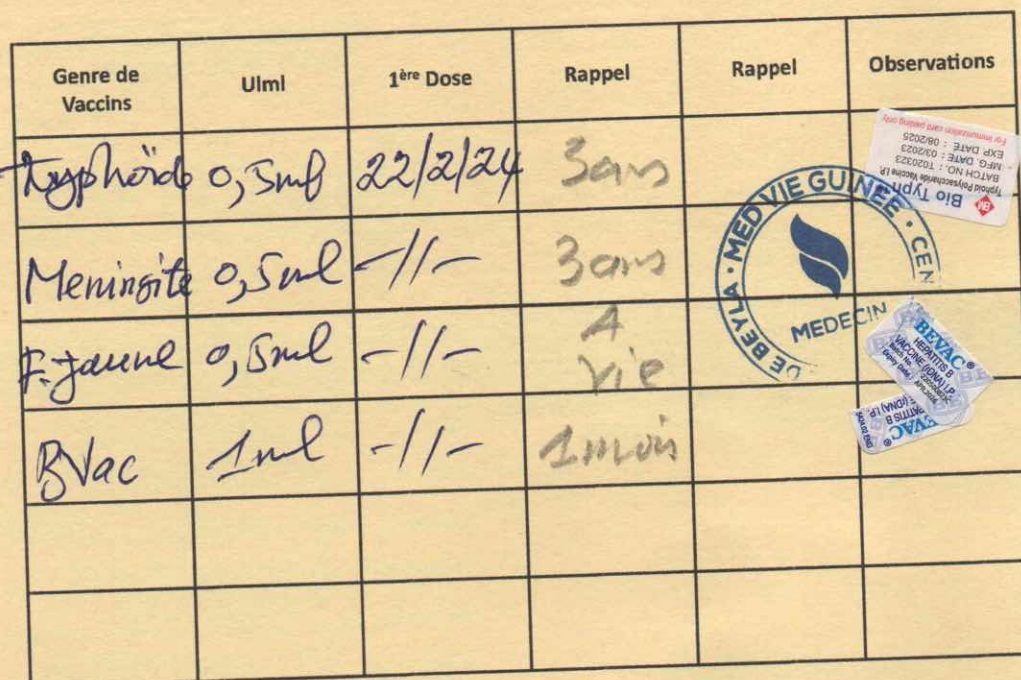 Genre de Vaccins Ulml 1ère Dose Rappel Rappel Observations
Typhoïde 0,5ml 22/2/24 3ans
Meningite 0,5ml -//- 3ans
F. Jaune 0,5ml -//- A vie
BVac 1ml -//- 1mois
Bio Typh
Typhoid Polysaccharide Vaccine I.P.
BATCH NO. : T020323
MFG. DATE : 03/2023
EXP. DATE : 08/2025
For immunization card pasting only
DE BEYLA · MED VIE GUINEE · CEN
MEDECIN
BEVAC®
HEPATITIS B
VACCINE (rDNA) I.P.
Batch No.
Expiry Date
BEVAC®